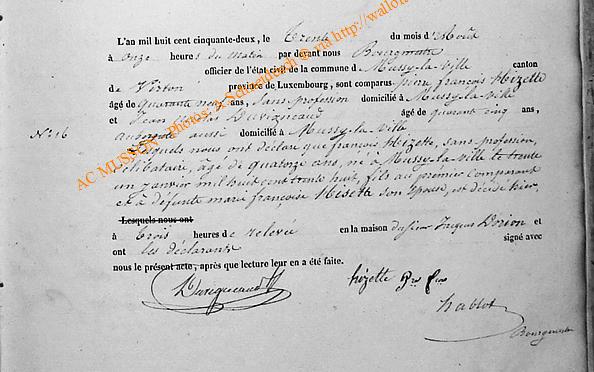 L'an mil huit cent cinquante-deux, le Trente du mois d'Août
à onze heures du matin par devant nous Bourgmestre
officier de l'état civil de la commune de Mussy-la-ville canton
de Virton province de Luxembourg, sont comparus pierre françois Hizette
âgé de quarante neuf ans, sans profession domicilié à Mussy-la-ville
et Jean Duvigneaud âgé de quarante cinq ans,
N° 16 aubergiste aussi domicilié à Mussy-la-ville
Lesquels nous ont déclaré que françois Hizette, sans profession,
célibataire, âgé de quatorze ans, né à Mussy-la-ville le trente
un janvier mil huit cent trente huit, fils du premier comparant
et de défunte marie françoise son épouse, est décédé hier,
Lesquels nous ont
à trois heures de relevée en la maison du sieur Jacques Dorion et
ont les déclarants signé avec
nous le présent acte, après que lecture leur en a été faite.
Duvigneaud hizette
hablot
Bourgmestre
AC MUSSON - Photos: A. Schaetzenbach © via http://wallon